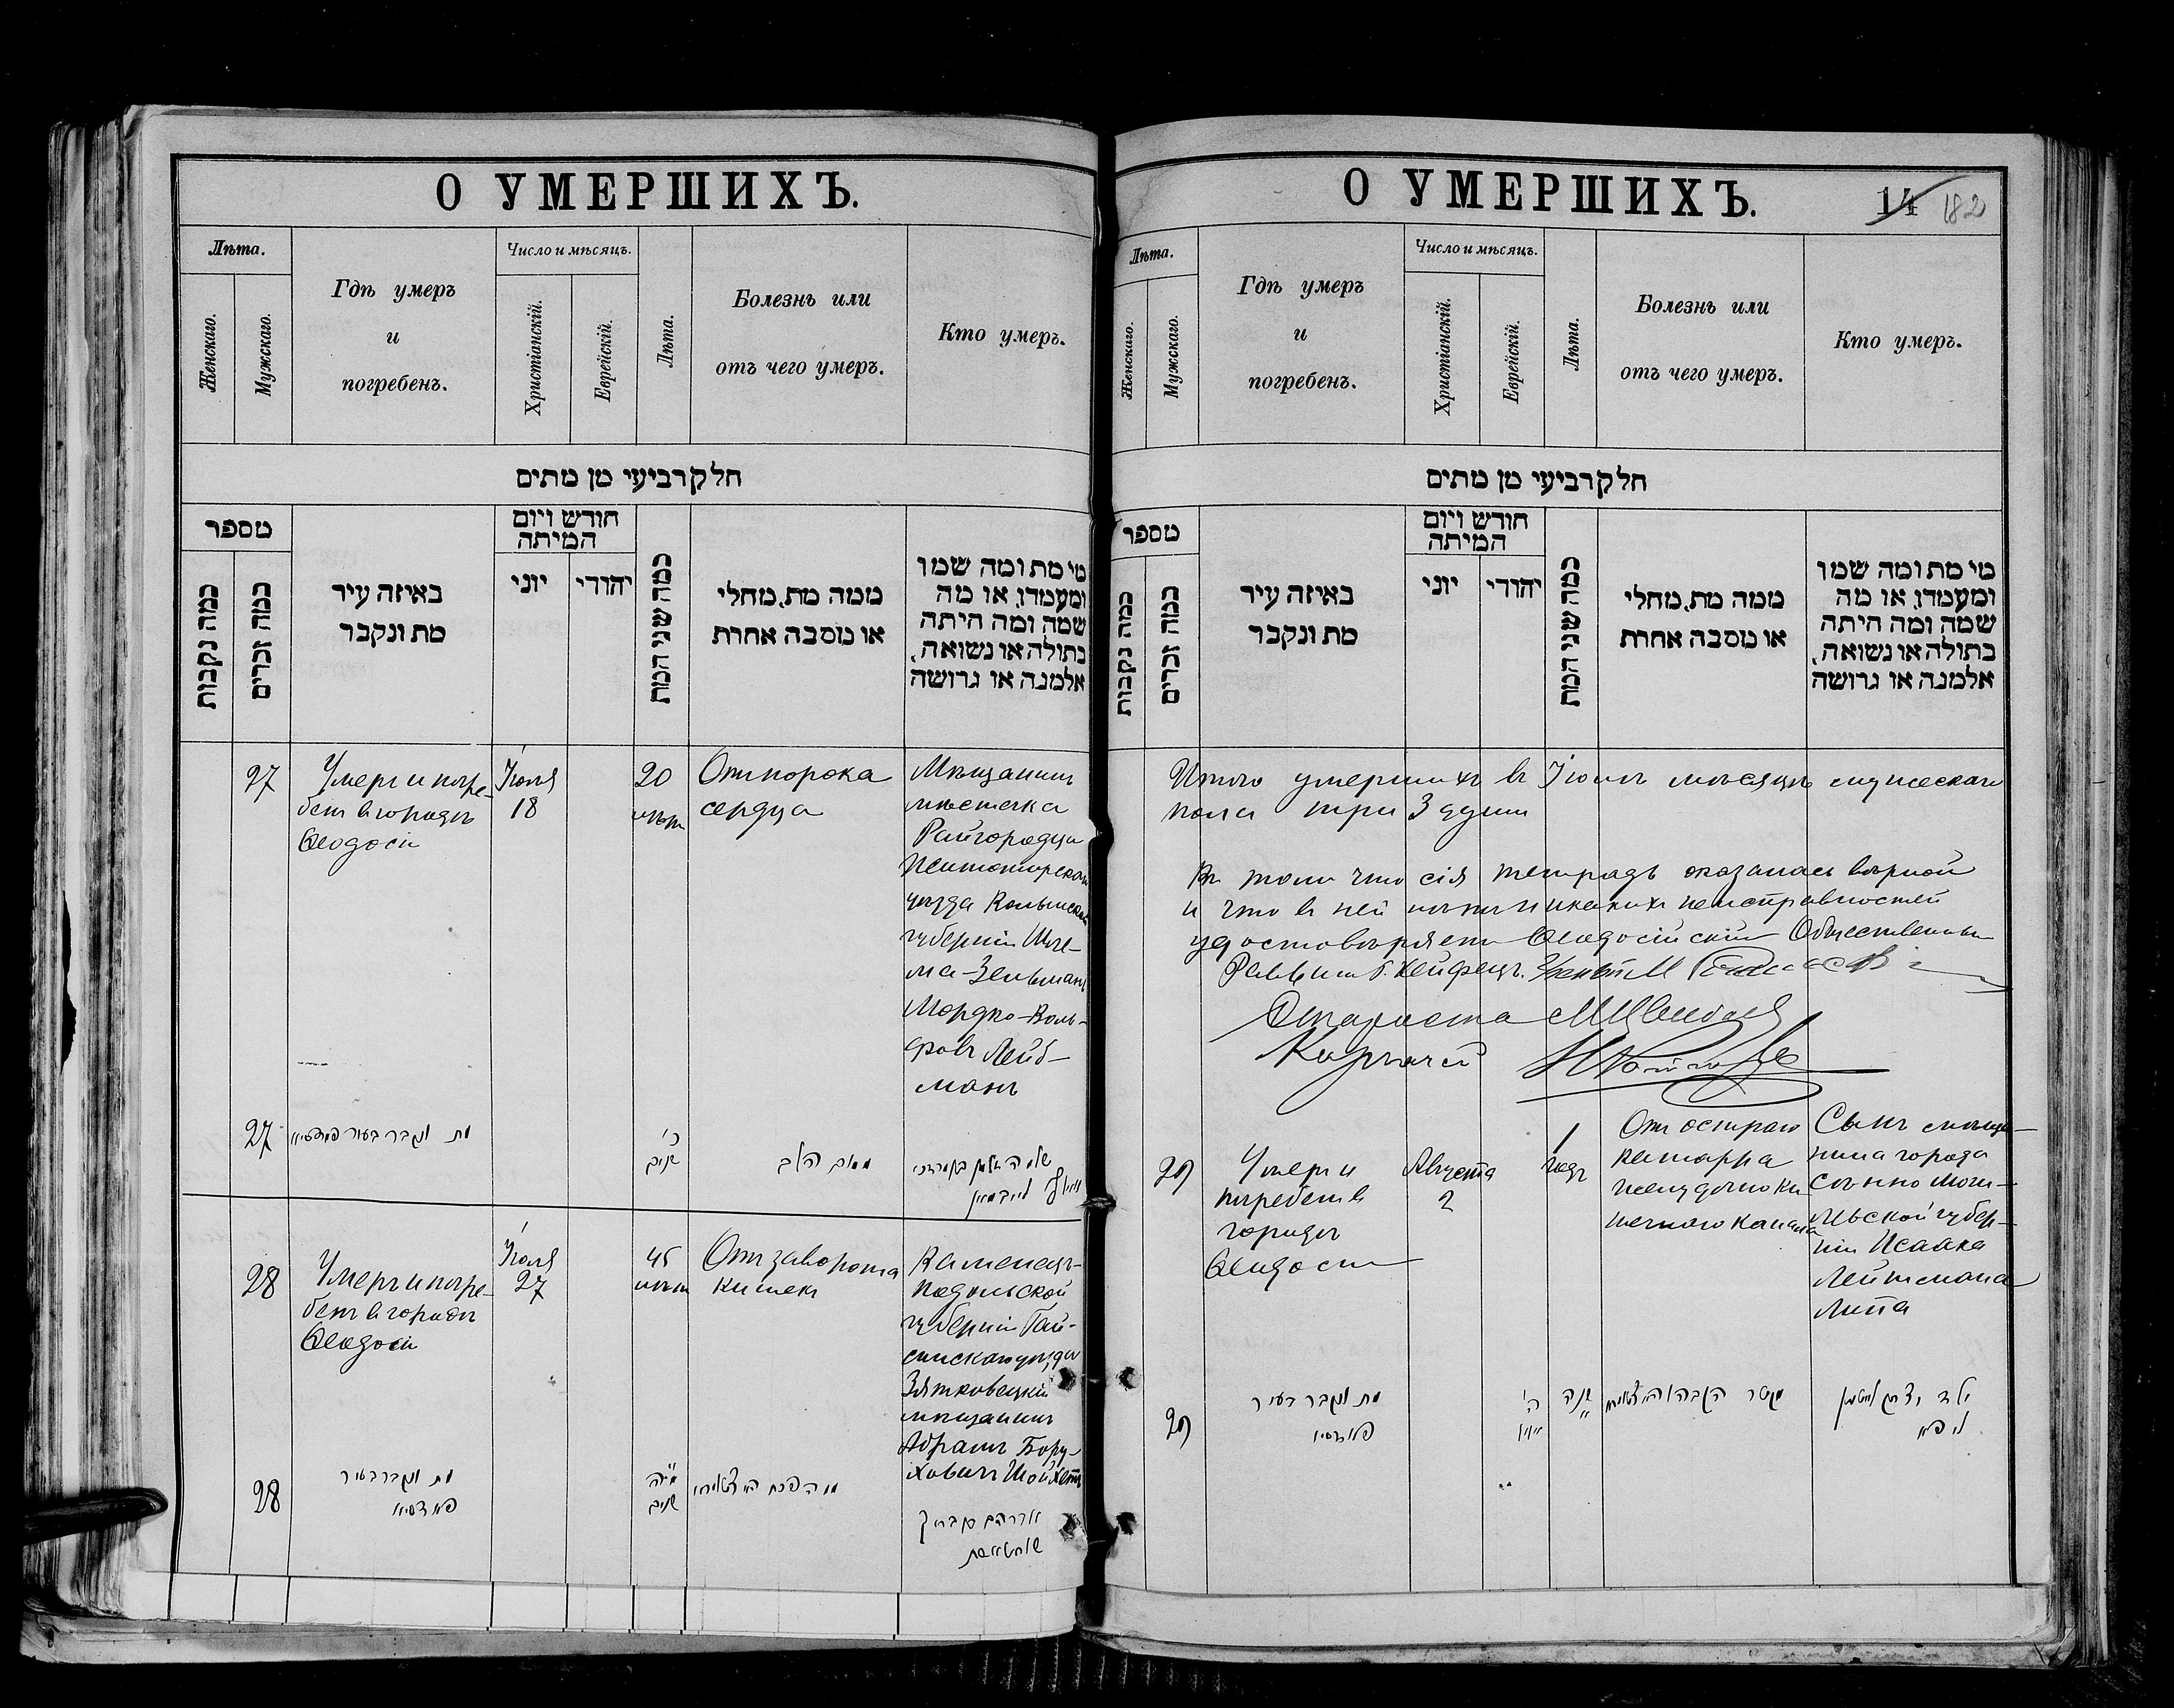 О УМЕРШИХЪ.
Лѣта.
Женскаго.
Мужскаго.
Гдѣ умеръ
и
погребенъ.
Число и мѣсяцъ.
Христіанскій.
Еврейскій.
Лѣта.
Болезнь или
отъ чего умеръ.
Кто умеръ.
חלק רביעי מן מתים
מספר
כמה נקבות
כמה זכרים
באיזה עיר
מת ונקבר
חודש ויום
המיתה
יוני
יהודי
כמה שני המת
ממה מת, מחלי
או מסבה אחרת
מי מת ומה שמו
ומעמדו, או מה
שמה ומה היתה
בתולה או נשואה,
אלמנה או גרושה
27
Умеръ и погре-
бенъ в городѣ
Ѳеодосіи
Іюля
18
20
лѣтъ
Отъ порока
сердца
Мѣщанинъ
мѣстечка
Райгородка
Житомирскаго
уѣзда Волынской
губерніи Шле-
ма-Зельманъ
Мордко-Воль-
фовъ Лейб-
манъ
27
מת ונקבר בעיר
כ'
שנים
ממום הלב
שלמה זלמן
לייבמאן
28
Умеръ и погре-
бенъ в городѣ
Ѳеодосіи
Іюля
27
45
лѣтъ
Отъ заворота
кишекъ
Каменецъ-
Подольской
губерніи Гай-
синскаго уѣзда
Зятковецкій
мѣщанинъ
Абрамъ Бору-
ховичъ Шойхетъ
28
מת ונקבר בעיר
מ"ה
שנים
О УМЕРШИХЪ.
14 182
Лѣта.
Женскаго.
Мужскаго.
Гдѣ умеръ
и
погребенъ.
Число и мѣсяцъ.
Христіанскій.
Еврейскій.
Лѣта.
Болезнь или
отъ чего умеръ.
Кто умеръ.
חלק רביעי מן מתים
מספר
כמה נקבות
כמה זכרים
באיזה עיר
מת ונקבר
חודש ויום
המיתה
יוני
יהודי
כמה שני המת
ממה מת, מחלי
או מסבה אחרת
מי מת ומה שמו
ומעמדו, או מה
שמה ומה היתה
בתולה או נשואה,
אלמנה או גרושה
Итого умершихъ въ Іюлѣ мѣсяцѣ мужескаго
пола три 3 души
Въ томъ что сія тетрадь оказалась вѣрной
и что в ней нѣтъ никакихъ неисправностей
удостовѣряетъ Ѳеодосійскій Общественный
Раввинъ Г. Хейфецъ.
Староста
Казначей
29
Умеръ и
погребенъ в
городѣ
Ѳеодосіи
Августа
2
1
годъ
Отъ остраго
катарра
желудочно ки-
шечнаго канала
Сынъ мѣща-
нина города
Сѣнно Моги-
льской губер-
ніи Исаака
Лейтмана
Липа
29
מת ונקבר בעיר
שנה
ילד יצחק לייטמאן
ליפא